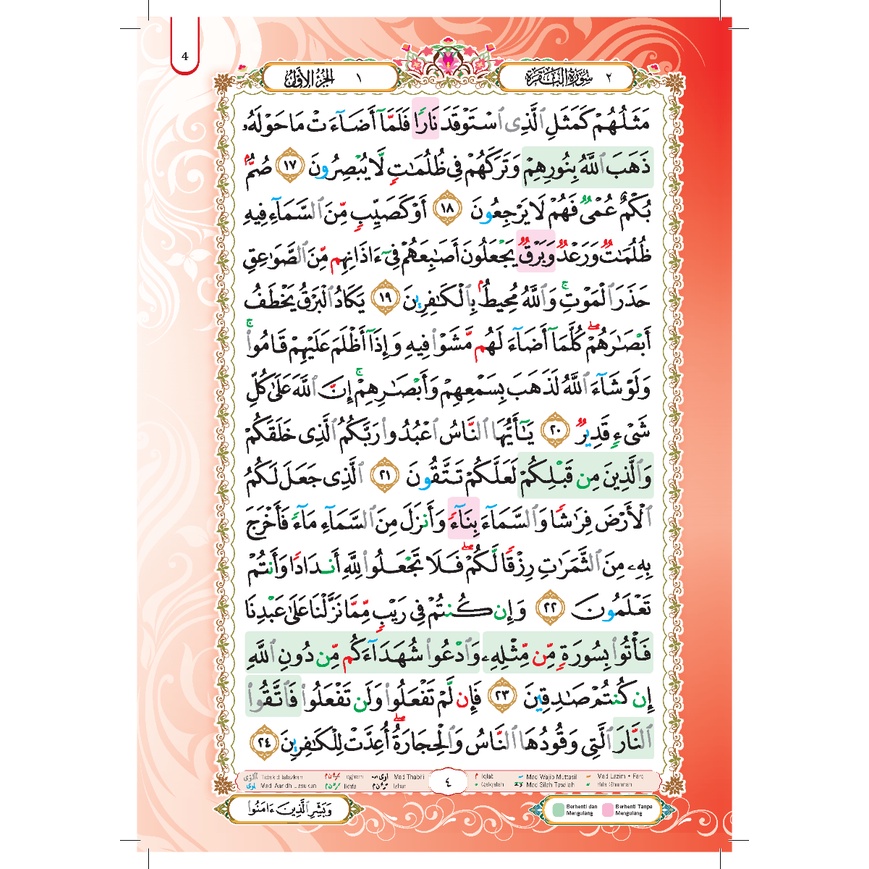 4
٢ سورة البقرة
الجزء الأول ١
مَثَلُهُمْ كَمَثَلِ ٱلَّذِى ٱسْتَوْقَدَ نَارًا فَلَمَّآ أَضَآءَتْ مَا حَوْلَهُۥ
ذَهَبَ ٱللَّهُ بِنُورِهِمْ وَتَرَكَهُمْ فِى ظُلُمَـٰتٍ لَّا يُبْصِرُونَ ١٧ صُمٌّۢ
بُكْمٌ عُمْىٌ فَهُمْ لَا يَرْجِعُونَ ١٨ أَوْ كَصَيِّبٍ مِّنَ ٱلسَّمَآءِ فِيهِ
ظُلُمَـٰتٌ وَرَعْدٌ وَبَرْقٌ يَجْعَلُونَ أَصَـٰبِعَهُمْ فِىٓ ءَاذَانِهِم مِّنَ ٱلصَّوَٰعِقِ
حَذَرَ ٱلْمَوْتِ ۚ وَٱللَّهُ مُحِيطٌۢ بِٱلْكَـٰفِرِينَ ١٩ يَكَادُ ٱلْبَرْقُ يَخْطَفُ
أَبْصَـٰرَهُمْ ۖ كُلَّمَآ أَضَآءَ لَهُم مَّشَوْا۟ فِيهِ وَإِذَآ أَظْلَمَ عَلَيْهِمْ قَامُوا۟ ۚ
وَلَوْ شَآءَ ٱللَّهُ لَذَهَبَ بِسَمْعِهِمْ وَأَبْصَـٰرِهِمْ ۚ إِنَّ ٱللَّهَ عَلَىٰ كُلِّ
شَىْءٍ قَدِيرٌ ٢٠ يَـٰٓأَيُّهَا ٱلنَّاسُ ٱعْبُدُوا۟ رَبَّكُمُ ٱلَّذِى خَلَقَكُمْ
وَٱلَّذِينَ مِن قَبْلِكُمْ لَعَلَّكُمْ تَتَّقُونَ ٢١ ٱلَّذِى جَعَلَ لَكُمُ
ٱلْأَرْضَ فِرَٰشًا وَٱلسَّمَآءَ بِنَآءً وَأَنزَلَ مِنَ ٱلسَّمَآءِ مَآءً فَأَخْرَجَ
بِهِۦ مِنَ ٱلثَّمَرَٰتِ رِزْقًا لَّكُمْ ۖ فَلَا تَجْعَلُوا۟ لِلَّهِ أَندَادًا وَأَنتُمْ
تَعْلَمُونَ ٢٢ وَإِن كُنتُمْ فِى رَيْبٍ مِّمَّا نَزَّلْنَا عَلَىٰ عَبْدِنَا
فَأْتُوا۟ بِسُورَةٍ مِّن مِّثْلِهِۦ وَٱدْعُوا۟ شُهَدَآءَكُم مِّن دُونِ ٱللَّهِ
إِن كُنتُمْ صَـٰدِقِينَ ٢٣ فَإِن لَّمْ تَفْعَلُوا۟ وَلَن تَفْعَلُوا۟ فَٱتَّقُوا۟
ٱلنَّارَ ٱلَّتِى وَقُودُهَا ٱلنَّاسُ وَٱلْحِجَارَةُ ۖ أُعِدَّتْ لِلْكَـٰفِرِينَ ٢٤
٤
وَبَشِّرِ ٱلَّذِينَ ءَامَنُوا۟
Berhenti dan Mengulang
Berhenti Tanpa Mengulang